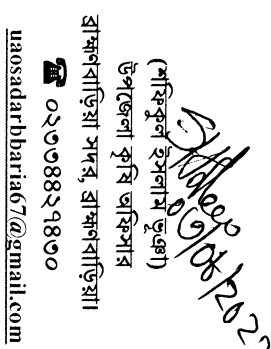 (শফিকুল ইসলাম ভূঞা)
উপজেলা কৃষি অফিসার
ব্রাহ্মণবাড়িয়া সদর, ব্রাহ্মণবাড়িয়া।
☎ ০২৩৩৪৪২৭৪৩০
uaosadarbbaria67@gmail.com